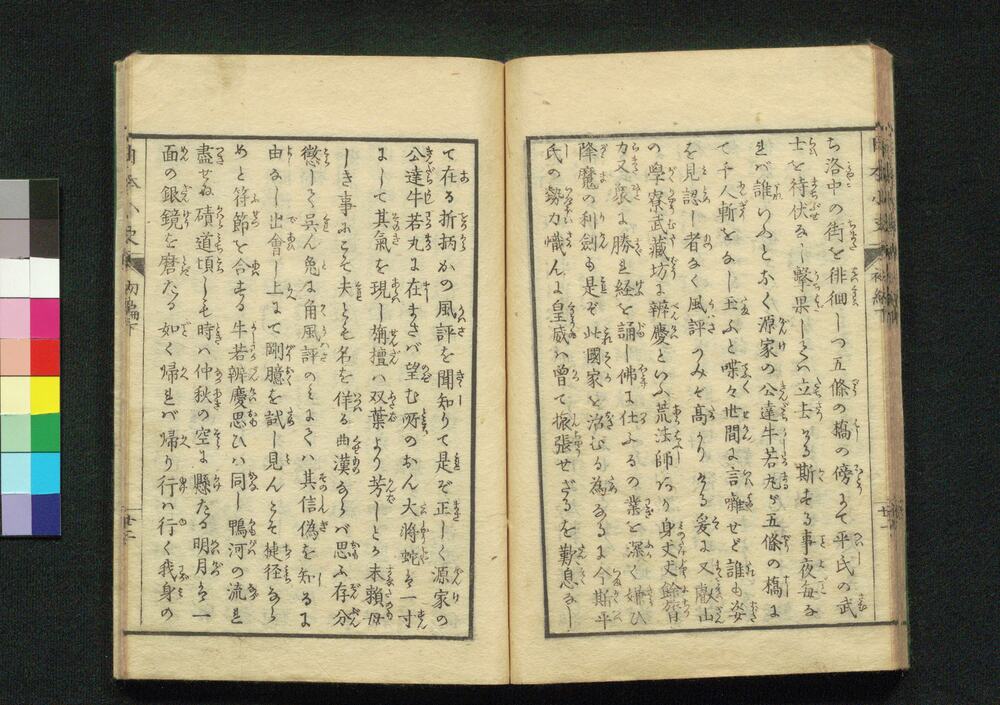 ち洛中の街を徘徊しつ五條の橋の傍にて平氏の武
士を待伏なし撃果してハ立去りける斯する事夜毎な
れバ誰いふとなく源家の公達牛若丸が五條の橋に
て千人斬をなし玉ふと喋々世間に言囃せど誰も姿
を見認し者なく風評のみぞ高かりける爰に又叡山
の學寮武蔵坊辨慶といふ荒法師あり身丈餘膂
力又衆に勝れ経を誦し佛に仕ふるの業を深く嫌ひ
降魔の利劍も是ぞ此國家を治むる為なるに今斯平
氏の勢力熾んに皇威ハ曽て振張せざるを歎息なし
て在る折柄かの風評を聞知りて是ぞ正しく源家の
公達牛若丸に在まさバ望む所のおん大将蛇ハ一寸
にして其氣を現し栴檀ハ双葉より芳しとか末頼母
しき事にこそ夫とも名を佯る曲漢ならバ思ふ存分
懲して呉ん兔に角風評のみにてハ其信偽を知るに
由なし出會し上にて剛臆を試し見んとぞ捷径なら
めと符節を合する牛若辨慶思ひハ同じ鴨河の流れ
盡せぬ磧道頃しも時ハ仲秋の空に懸たる明月ハ一
面の銀鏡を磨たる如く帰れバ帰り行ハ行く我身の
初編下
廿二